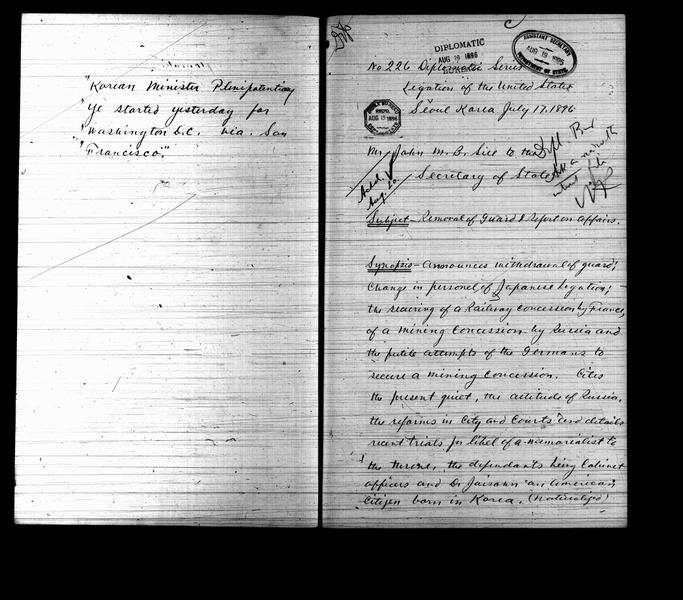 "Korean Minister Plenipotentiary
"Ye started yesterday for
"Washington D.C. via. San
"Francisco."
DIPLOMATIC
AUG 19 1896
ASSISTANT SECRETARY
AUG 19 1896
DEPARTMENT OF STATE
No 226 Diplomatic Series
Legation of the United States
Seoul Korea July 17. 1896
AUG 15 1896
Mr John M. B. Sill to the
Secretary of State
Ackd.
Aug. 20.
Subject - Removal of Guard & Report on Affairs.
Synopsis - Announces withdrawal of guard;
Change in personel of Japanese Legation;
the securing of a Railway concession by France,
of a mining Concession by Russia and
the futile attempts of the Germans to
secure a mining concession. Cites
the present quiet, the attitude of Russia,
the reforms in City and Courts and details
recent trials for libel of a memorialist to
the throne, the defendants being Cabinet
officers and Dr Jaisohn an American
Citizen born in Korea. (naturalized)